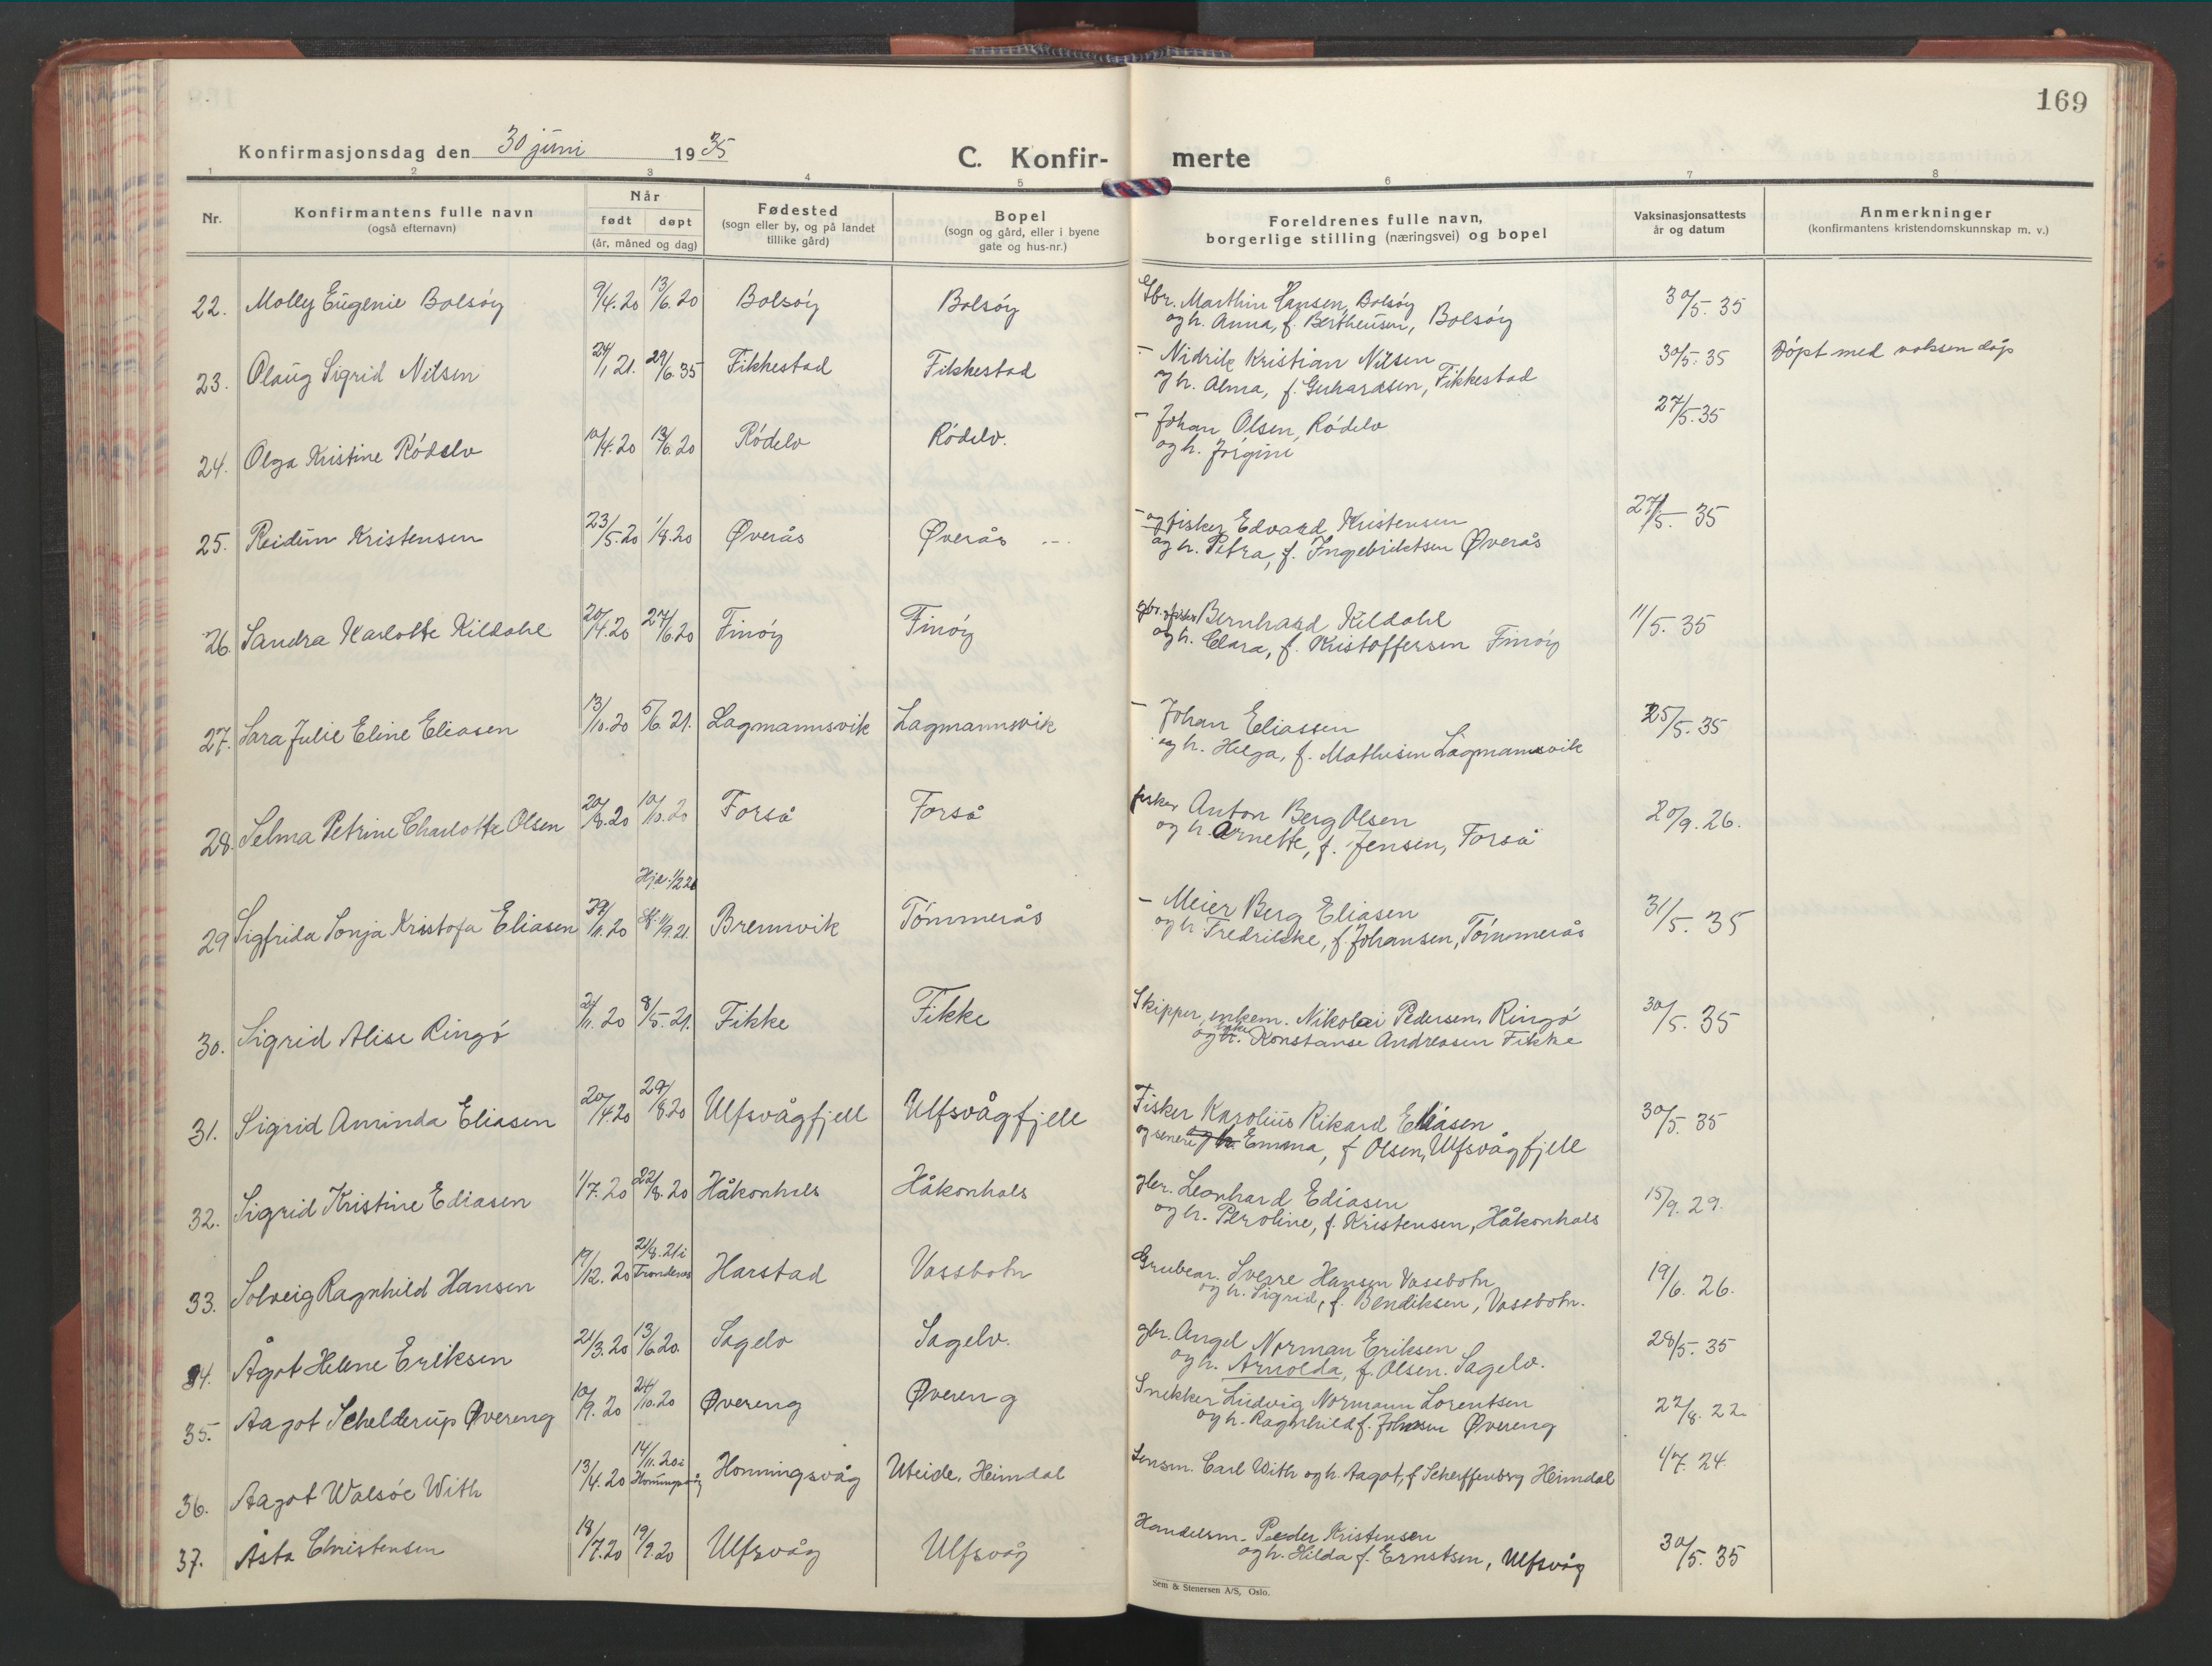 169
Konfirmasjonsdag den 30 juni 1935
C. Konfir- merte
1 2 3 4 5 6 7 8
Nr. Konfirmantens fulle navn (også efternavn) Når født døpt (år, måned og dag) Fødested (sogn eller by, og på landet tillike gård) Bopel (sogn og gård, eller i byene gate og hus-nr.) Foreldrenes fulle navn, borgerlige stilling (næringsvei) og bopel Vaksinasjonsattests år og datum Anmerkninger (konfirmantens kristendomskunnskap m. v.)
22. Molly Eugenie Bolsöy 9/4.20 13/6.20 Bolsöy Bolsöy Gbr. Marthin Hansen, Bolsöy 30/5.35
og h. Anna, f. Bertheusen, Bolsöy
23. Olaug Sigrid Nilsen 24/1.21. 29/6.35 Fikkestad Fikkestad - Nidrik Kristian Nilsen 30/5.35 Döpt med voksen dåp
og h. Alma, f. Gerhardsen, Fikkestad
24. Olga Kristine Rödelv 10/4.20 13/6.20 Rödelv Rödelv. - Johan Olsen, Rödelv 27/5.35
og h. Jörgine
25. Reidun Kristensen 23/5.20 1/8.20 Øverås Øverås - og fisker Edvard Kristensen 27/5.35
og h. Petra, f. Ingebriktsen Øverås
26. Sandra Karlotte Kildahl 20/4.20 27/6.20 Finöy Finöy gbr. og fisker Bernhard Kildahl 11/5.35
og h. Clara, f. Kristoffersen Finöy
27. Sara Julie Eline Eliasen 13/10.20 5/6.21. Lagmannsvik Lagmannsvik - Johan Eliassen 25/5.35
og h. Helga, f. Mathisen Lagmannsvik
28. Selma Petrine Charlotte Olsen 20/8.20 10/10.20 Forså Forså fisker Anton Berg Olsen 20/9.26.
og h. Arnette, f. Jensen, Forså
29 Sigfrida Sonja Kristofa Eliasen 29/11.20 Hjd. 1/2 21 St. 11/9.21. Brennvik Tömmerås - Meier Berg Eliasen 31/5.35
og h. Fredrikke, f. Johansen, Tömmerås
30. Sigrid Alise Ringö 21/11.20 8/5.21. Fikke Fikke Skipper, enkem. Nikolai Pedersen, Ringö 30/5.35
og h. enke Konstanse Andreasen Fikke
31. Sigrid Aminda Eliasen 20/4.20 29/8.20 Ulfsvågfjell Ulfsvågfjell Fisker Karolius Rikard Eliasen 30/5.35
og senere og h. Emma, f. Olsen, Ulfsvågfjell
32. Sigrid Kristine Ediasen 1/7.20 22/8.20 Håkonhals Håkonhals gbr. Leonhard Ediasen 15/9.29.
og h. Peroline, f. Kristensen, Håkonhals
33. Solveig Ragnhild Hansen 17/12.20 21/8.21 i Trondenes Harstad Vassbotn Grubear. Sverre Hansen Vassbotn 19/6.26.
og h. Sigrid, f. Bendiksen, Vassbotn.
34. Ågot Helene Eriksen 21/3.20 13/6.20. Sagelv Sagelv. gbr. Angel Norman Eriksen 28/5.35
og h. Arnolda, f. Olsen. Sagelv.
35. Aagot Schelderup Øvereng 10/9.20 24/10.20 Øvereng Øvereng Snekker Ludvig Normann Lorentsen 22/8.22.
og h. Ragnhild f. Johnsen Øvereng
36. Aagot Walsöe With 13/4.20 14/11.20 i Honningsvåg Honningsvåg Uteide, Heimdal Lensm. Carl With og h. Aagot, f. Scheffenberg Heimdal 1/7.24.
37. Åsta Christensen 18/7.20 19/9.20 Ulfsvåg Ulfsvåg Handelsm. Peder Kristensen 30/5.35
og h. Hilda f. Ernstsen, Ulfsvåg
Sem & Stenersen A/S, Oslo.